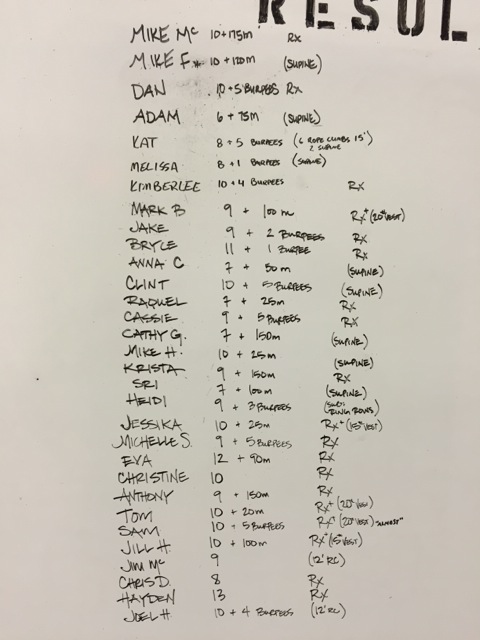 RESUL
MIKE MC 10+175m Rx
MIKE F. 10 + 120m (SUPINE)
DAN 10+5 BURPEES Rx
ADAM 6 + 75M (SUPINE)
KAT 8 + 5 BURPEES (6 ROPE CLIMBS 15'
2 SUPINE
MELISSA 8+1 BURPEES (SUPINE)
KIMBERLEE 10+4 BURPEES Rx
MARK B 9 + 100m Rx+ (20# VEST)
JAKE 9 + 2 BURPEES Rx
BRYLE 11 + 1 BURPEE Rx
ANNA C 7 + 50m (SUPINE)
CLINT 10 + 5 BURPEES (SUPINE)
RAQUEL 7 + 25m Rx
CASSIE 9 + 5 BURPEES Rx
CATHY G. 7 + 150m (SUPINE)
MIKE H. 10 + 25m (SUPINE)
KRISTA 9 + 150m Rx
SRI 7 + 100m (SUPINE)
HEIDI 9 + 3 BURPEES RING ROWS)
JESSIKA 10 + 25m Rx+ (15# VEST)
MICHELLE S. 9 + 5 BURPEES Rx
EVA 12 + 90m Rx
CHRISTINE 10 Rx
ANTHONY 9 + 150m Rx
TOM 10 + 20m Rx+ (20# VEST)
SAM 10 + 5 BURPEES Rx+ (20# VEST)
JILL H. 10 + 100m Rx+ (15# VEST)
JIM MC 9 (12' RC)
CHRIS D. 8 Rx
HAYDEN 13 Rx
JOEL H 10 + 4 BURPEES (12' RC)